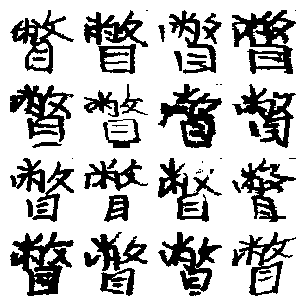 瞥瞥瞥瞥
瞥瞥瞥瞥
瞥瞥瞥瞥
瞥瞥瞥瞥